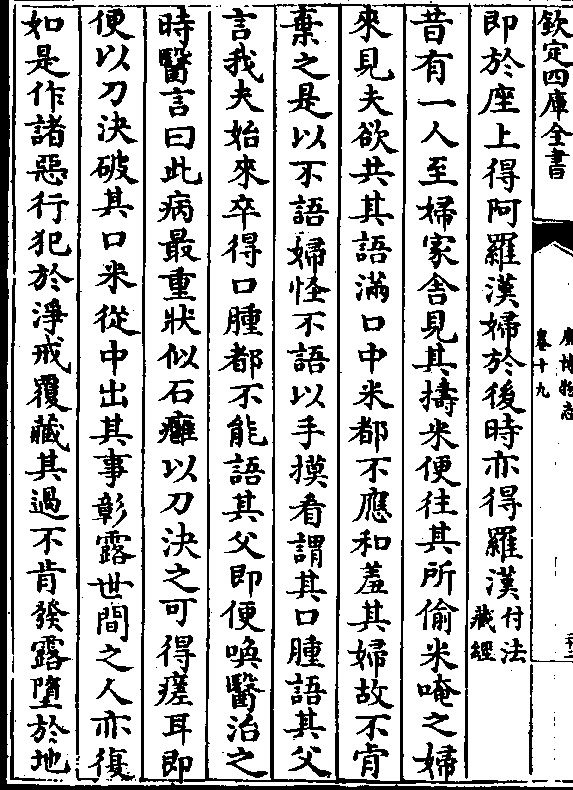 欽定四庫全書
廣博物志
卷十九
即於座上得阿羅漢婦於後時亦得羅漢付法藏經
昔有一人至婦家舍見其擣米便往其所偷米唵之婦
來見夫欲共其語滿口中米都不應和羞其婦故不肯
棄之是以不語婦怪不語以手摸看謂其口腫語其父
言我夫始來卒得口腫都不能語其父即便喚醫治之
時醫言曰此病最重狀似石癰以刀決之可得瘥耳即
便以刀決破其口米從中出其事彰露世間之人亦復
如是作諸惡行犯於淨戒覆藏其過不肯發露墮於地